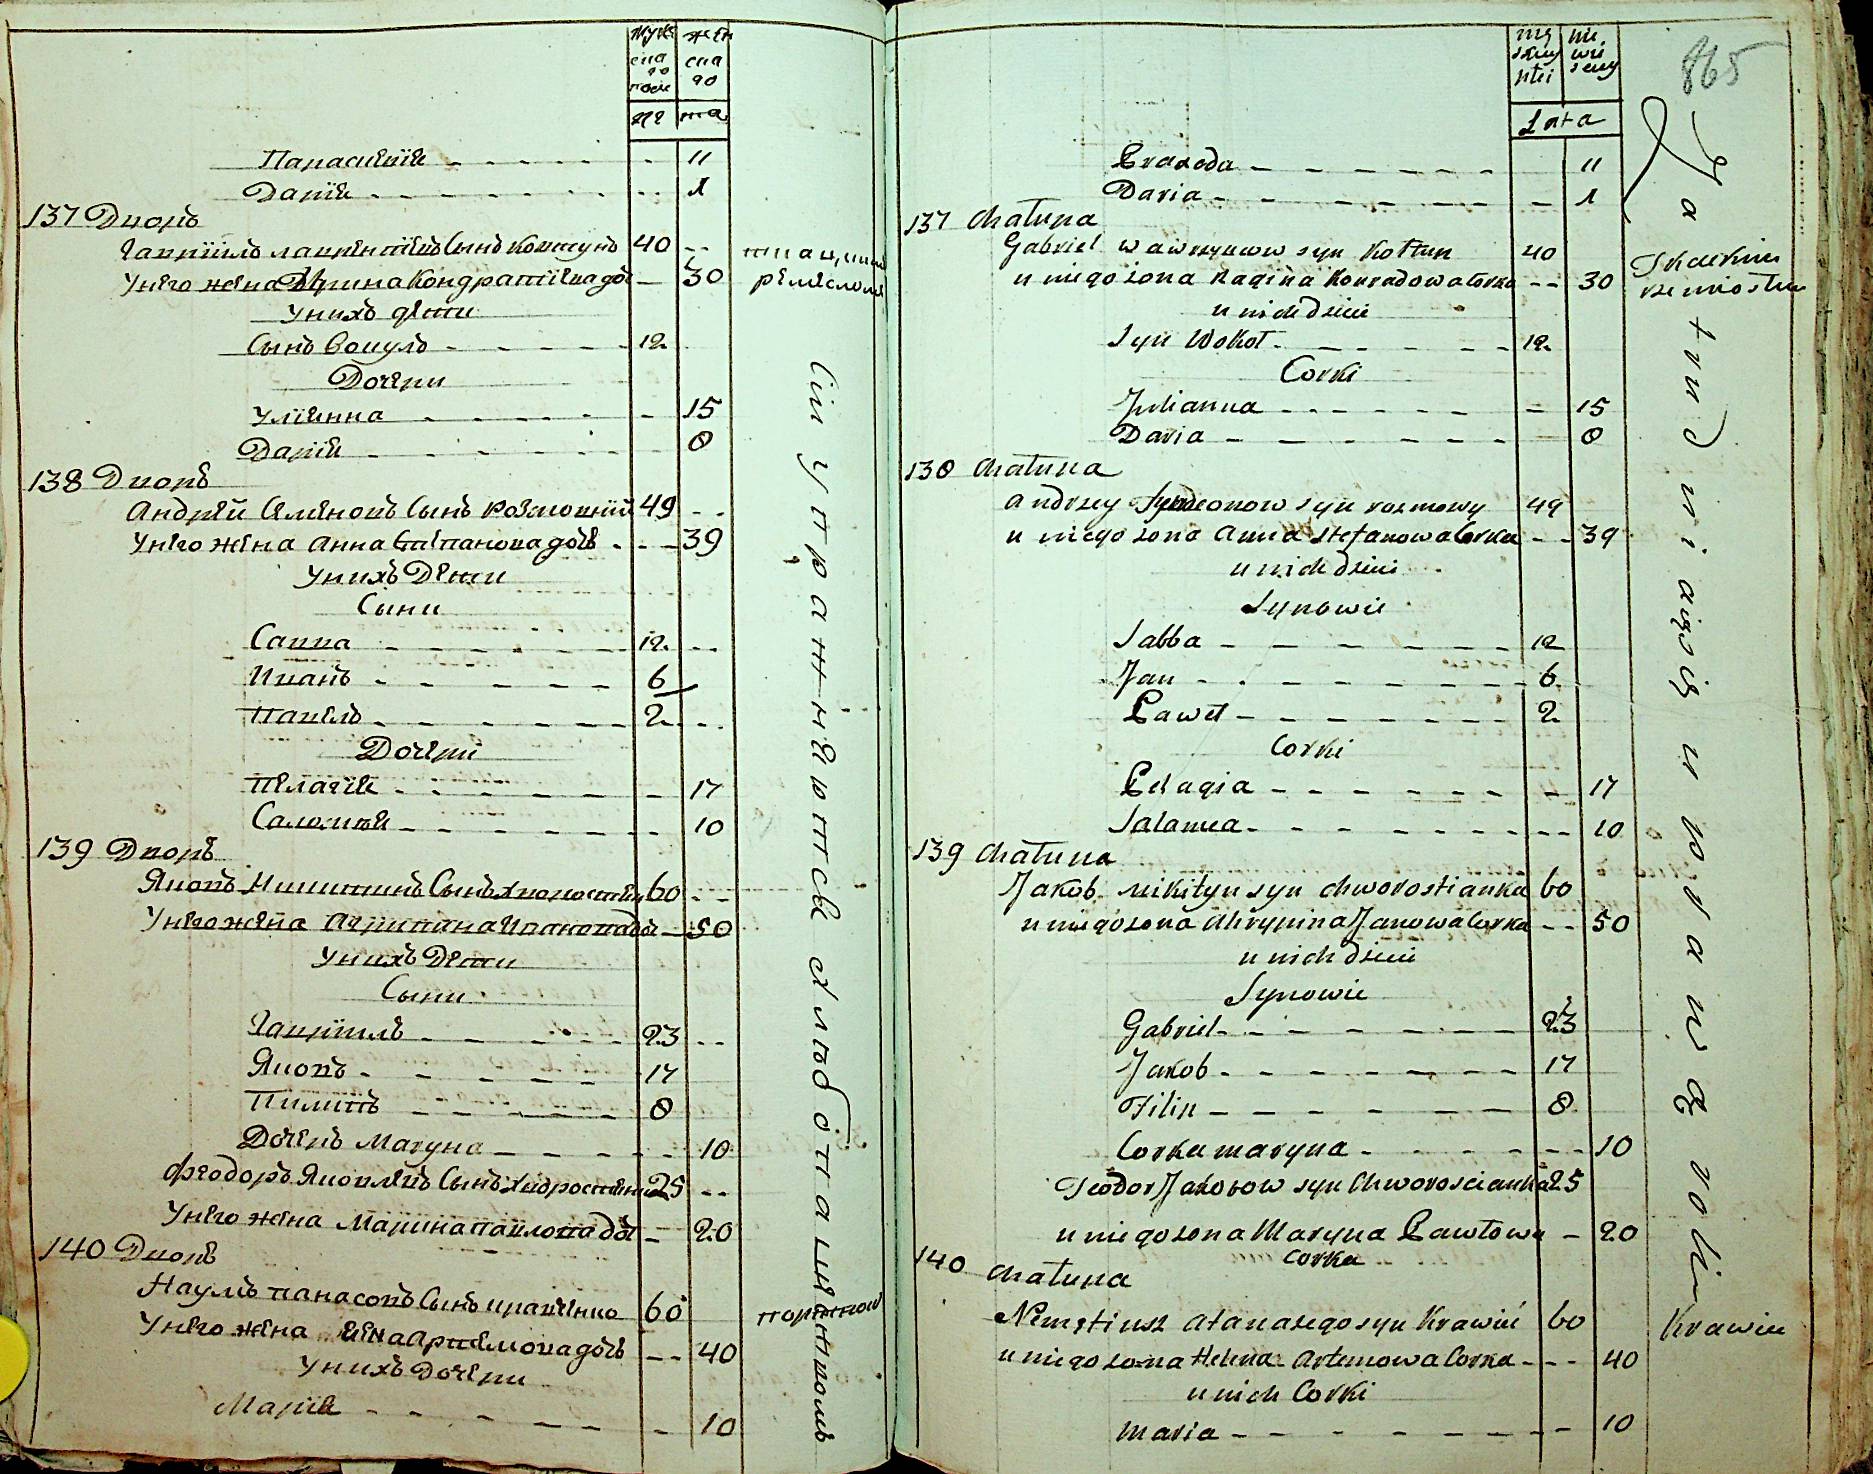 мужеска до полу жен ска до
лѣ та
Параскевія 11
Дарія 1
137 Дворъ
Гавріилъ лаврентіевъ Сынъ Ковтунъ 40
Унего жена Кондратіева дочь 30
Унихъ дети
Сынъ Вокулъ 12
Дочери
Уліянна 15
Дарія 8
138 Дворъ
Андрей Семеновъ Сынъ Розмовній 49
Унего жена Анна Степанова дочь 39
Унихъ Дети
Сыни
Савва 12
Иванъ 6
Павелъ 2
Дочери
Пелагія 17
Саломія 10
139 Дворъ
Яковъ Никитинъ Сынъ 60
Унего жена Агрипина Иванова дочь 50
Унихъ Дети
Сыни
Гавріилъ 23
Яковъ 17
Пилипъ 8
Дочерь Марина 10
Феодоръ Яковлевъ Сынъ 25
Унего жена Марина павлова дочь 20
140 Дворъ
Наумъ панасовъ Сынъ кравченко 60
Унего жена Елена Артемова дочь 40
Унихъ Дочери
Марія 10
ткацким
ремесломъ
Сіи упражняются хлебопашеством
портнои
865
męskiey płci niewieściey
Lata
Praxeda 11
Daria 1
137 Chałupa
Gabriel wawrzyncow syn Kołtun 40
u niego żona Konradowa Corka 30
u nich Dzieci
Syn Wokoł 12
Corki
Julianna 15
Daria 8
138 Chałupa
Andrzey Symeonow syn rozmowy 49
u niego żona Anna Stefanowa Corka 39
u nich dzieci
Synowie
Sabba 12
Jan 6
Paweł 2
Corki
Pelagia 17
Salamea 10
139 Chałupa
Jakob Nikityn syn Chworostianka 60
u niego żona Ahrypina Janowa Corka 50
u nich dzieci
Synowie
Gabriel 23
Jakob 17
Filip 8
Corka maryna 10
Teodor Jakobow syn Chworoscianka 25
u niego żona Maryna Pawłowa 20
Corka
140 Chałupa
Atanazego syn Krawiec 60
u niego żona Helena Artemowa Corka 40
u nich Corki
Maria 10
Tkackim
rzemiosłem
Zatrudniaią się uprawą roli
Krawiec